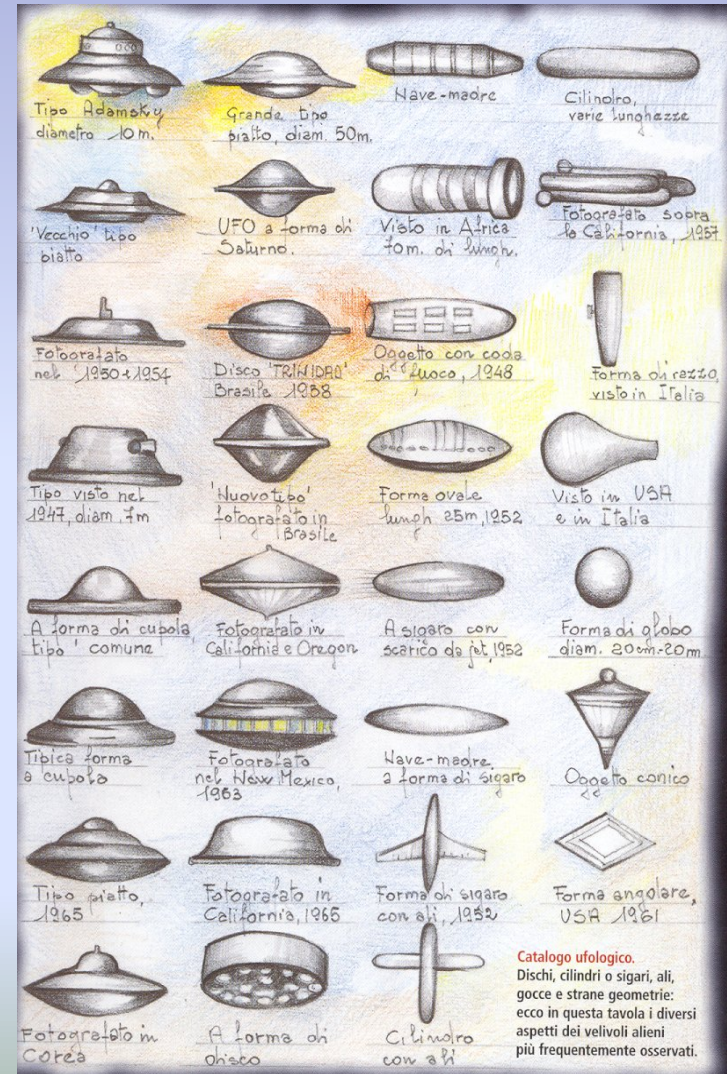 Tipo Adamsky
diametro 10 m.
Grande tipo
piatto, diam. 50m.
Nave-madre
Cilindro,
varie lunghezze
'Vecchio' tipo
piatto
UFO a forma di
Saturno.
Visto in Africa
70m. di lungh.
Fotografato sopra
la California, 1957
Fotografato
nel 1950+1954
Disco 'TRINIDAD'
Brasile 1958
Oggetto con coda
di fuoco, 1948
Forma di razzo,
visto in Italia
Tipo visto nel
1947, diam. 7m
'Nuovo tipo'
fotografato in
Brasile
Forma ovale
lungh 25m, 1952
Visto in USA
e in Italia
A forma di cupola
tipo' comune
Fotografato in
California e Oregon
A sigaro con
scarico da jet, 1952
Forma di globo
diam. 20cm-20m.
Tipica forma
a cupola
Fotografato
nel New Mexico,
1963
Nave-madre
a forma di sigaro
Oggetto conico
Tipo piatto,
1965
Fotografato in
California, 1965
Forma di sigaro
con ali, 1952
Forma angolare,
USA 1961
Fotografato in
Corea
A forma di
disco
Cilindro
con ali
Catalogo ufologico.
Dischi, cilindri o sigari, ali,
gocce e strane geometrie:
ecco in questa tavola i diversi
aspetti dei velivoli alieni
più frequentemente osservati.